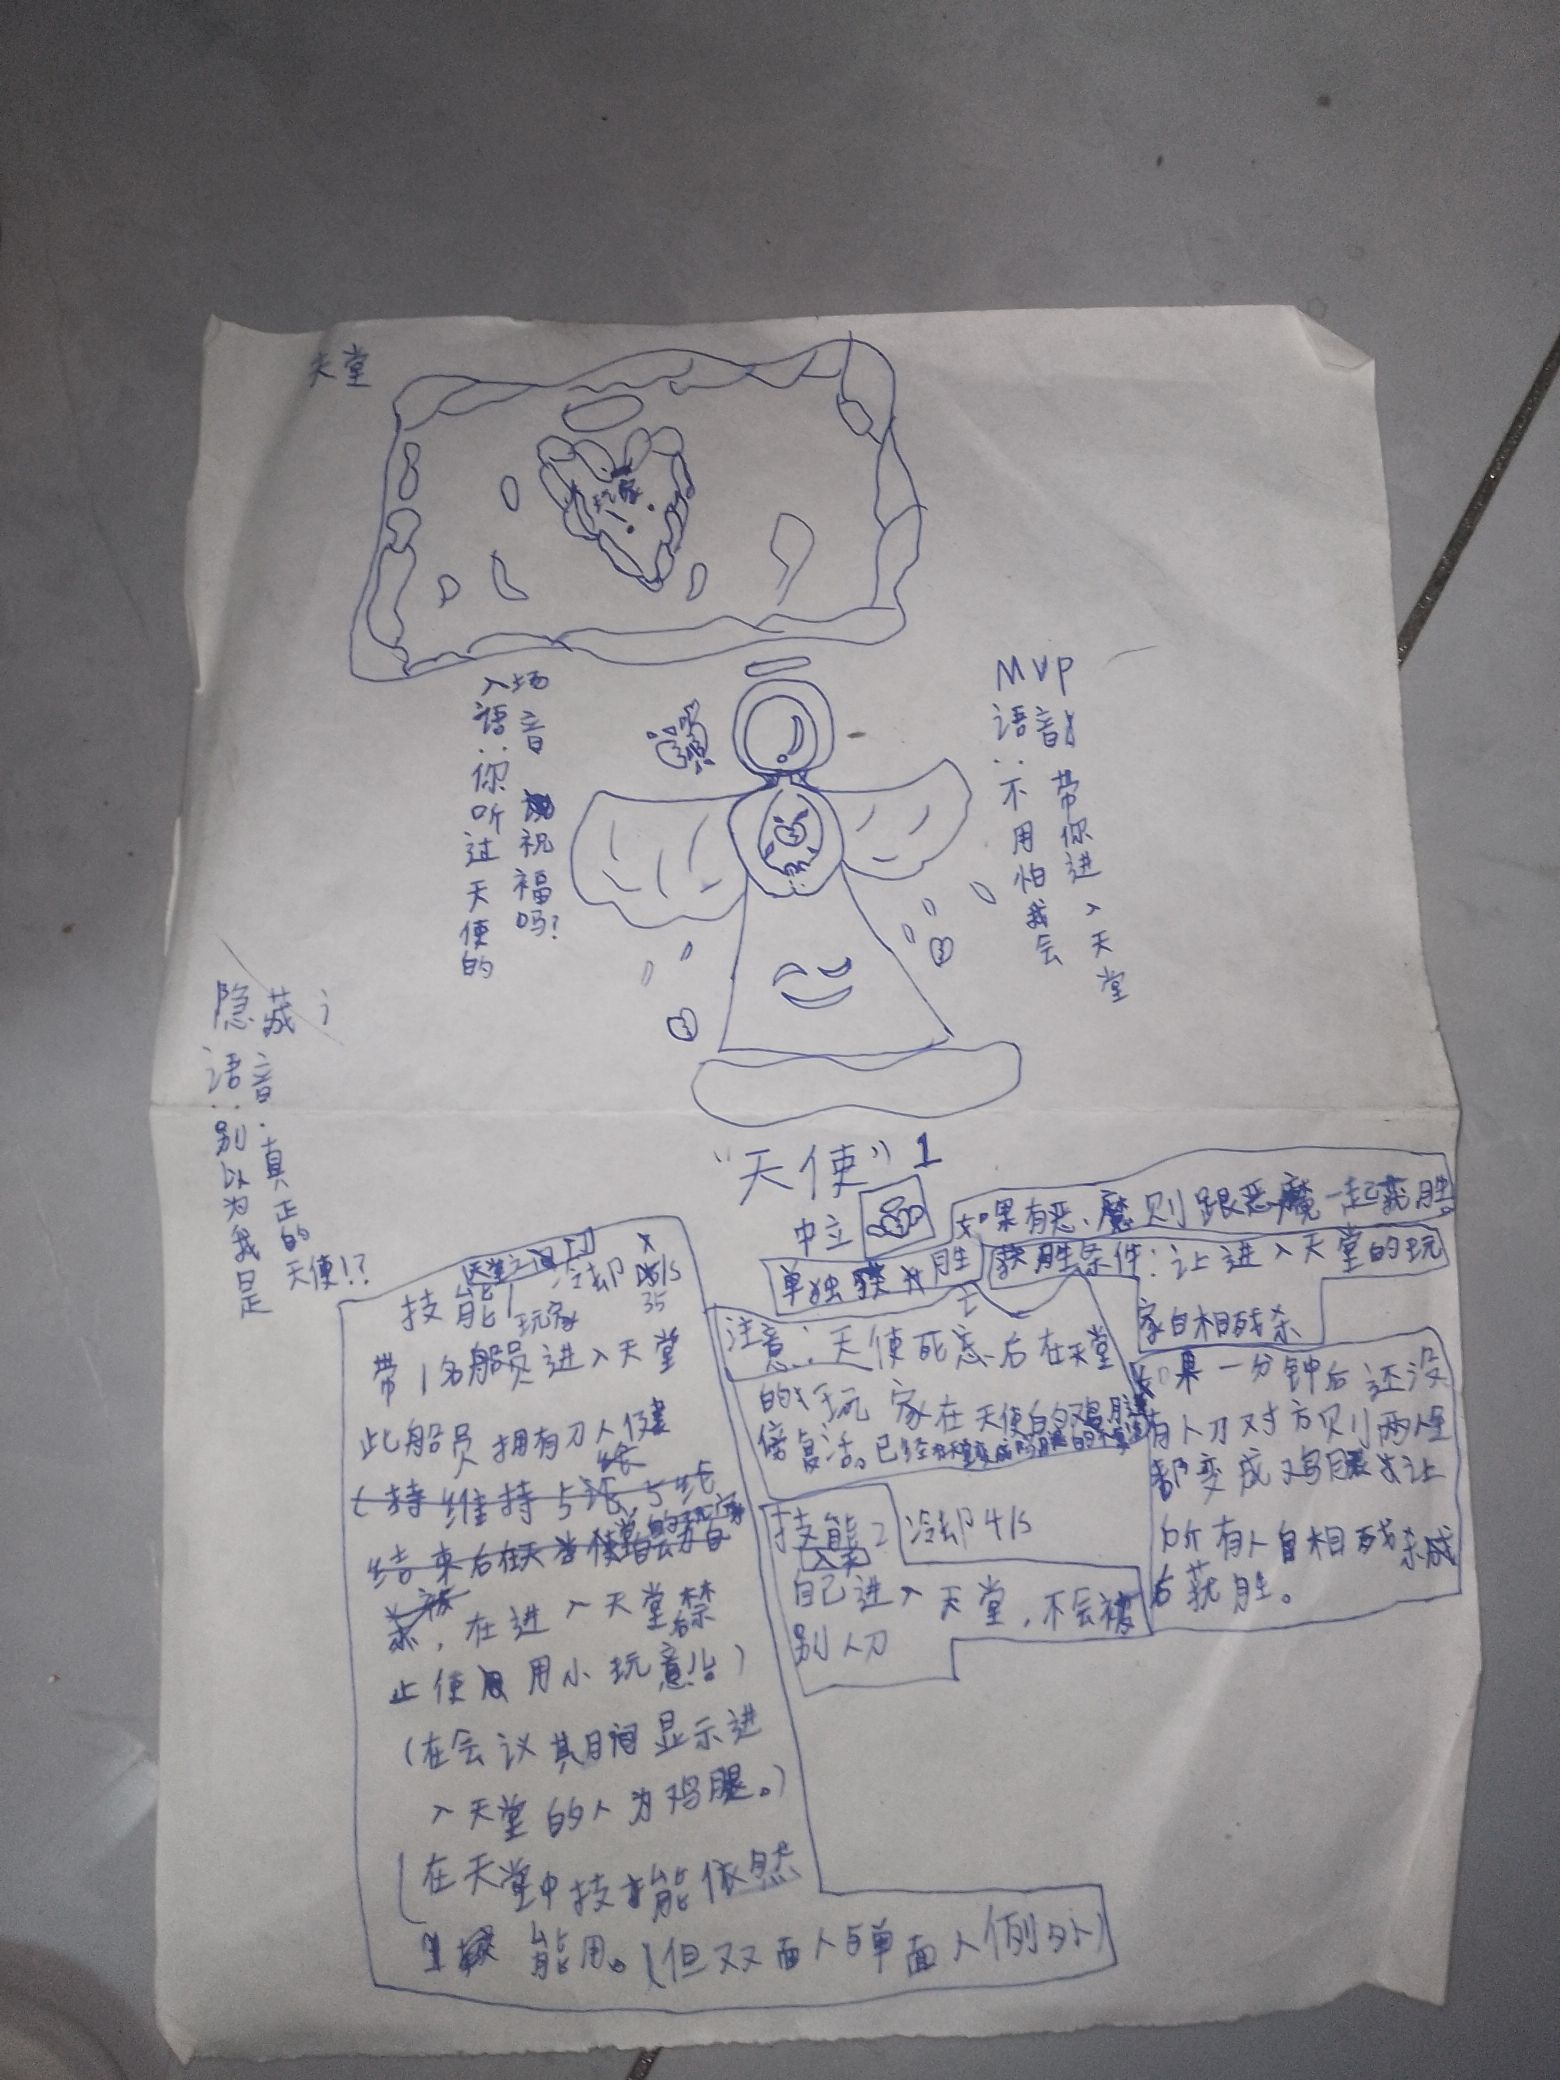 天堂
玩家
入场
语音:你听过天使的
祝福吗?
MVP
语音:不用怕我会
带你进入天堂
隐藏
语音:别以为我是
真正的天使!?
“天使”1
中立
如果有恶魔则跟恶魔一起获胜。
单独获胜
获胜条件:让进入天堂的玩
家自相残杀
如果一分钟后还没
有人刀对方则两人
都变成鸡腿
所有人自相残杀成
右获胜。
技能1 冷却
35
玩家
带1名船员进入天堂
此船员拥有刀人键
在进入天堂禁
止使用小玩意
(在会议其间显示进
入天堂的人为鸡腿。)
(在天堂中技能依然
能用。(但双面人与单面人例外)
注意:天使死忘右在天堂
的玩家在天使的鸡腿
傍复活。已经
技能2 冷却4/s
入天
自己进入天堂,不会被
别人刀